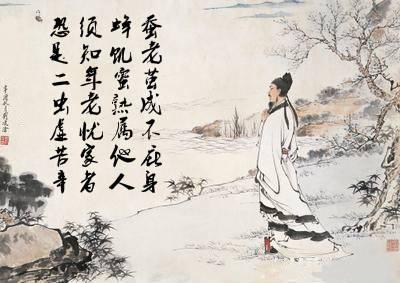 蚕老茧成不庇身
蜂饥蜜熟属他人
须知年老忧家者
恐是二虫虚苦辛